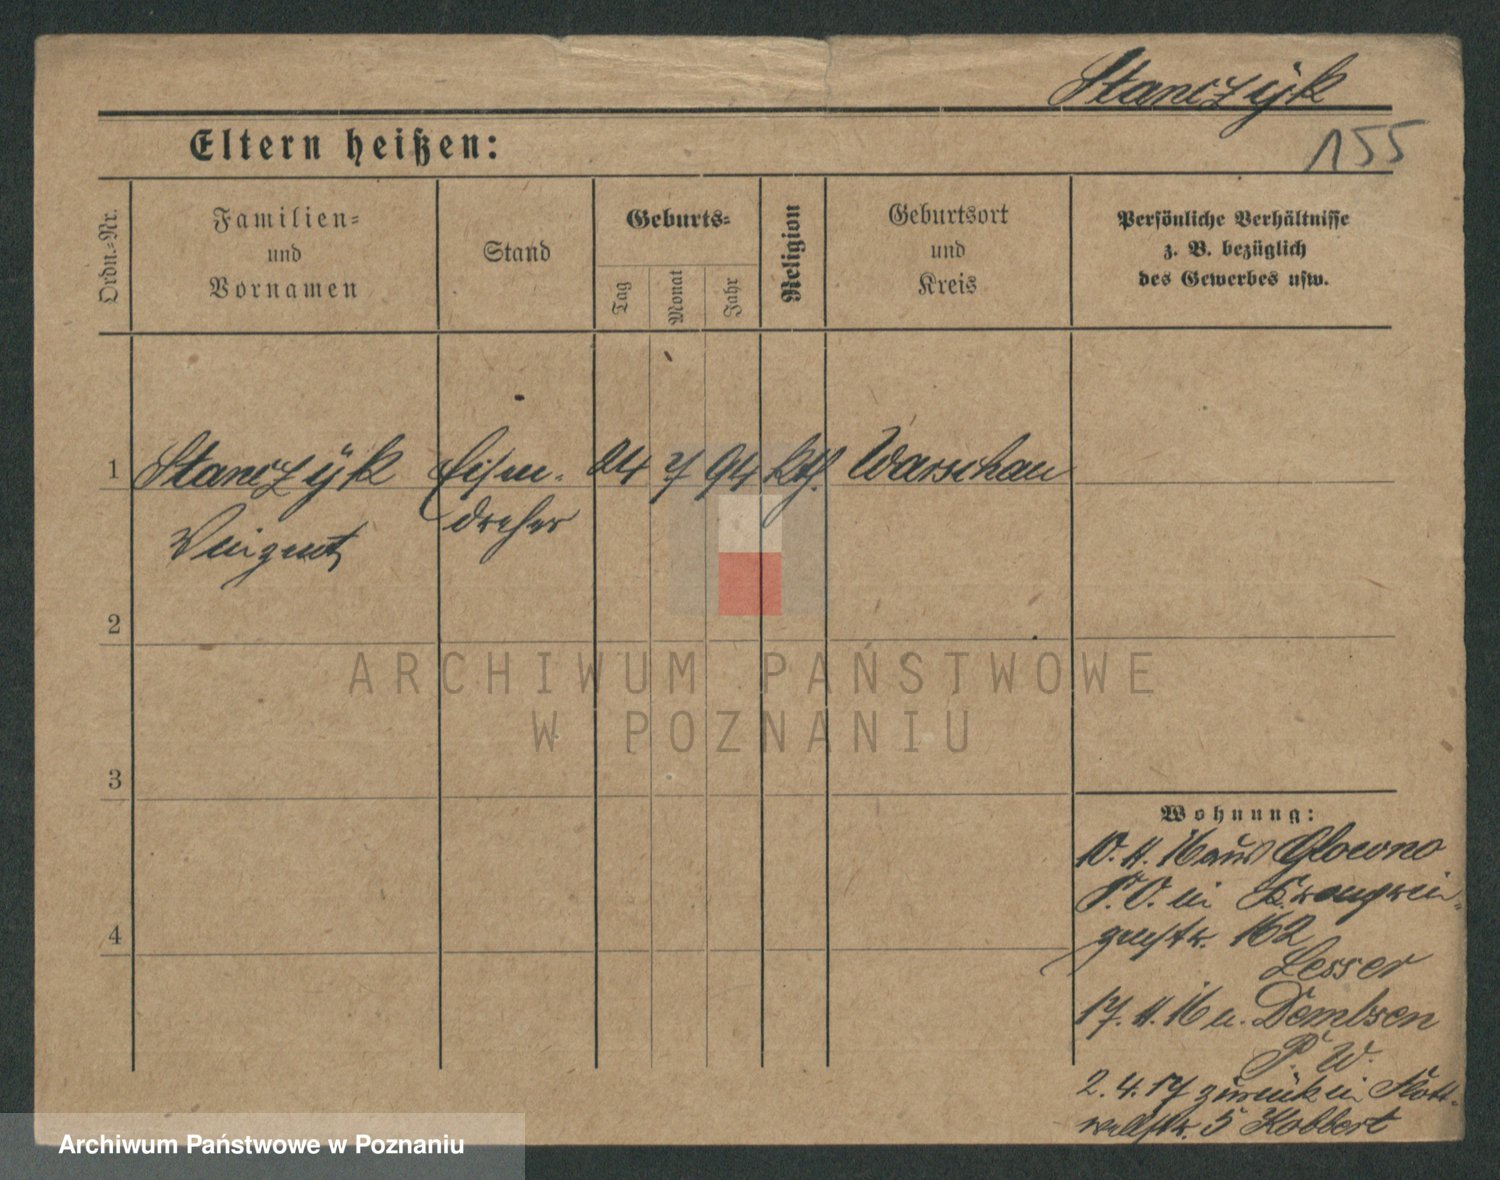 Stanczÿk
155
Eltern heißen:
Ordn.-Nr.
Familien-
und
Vornamen
Stand
Geburts-
Tag
Monat
Jahr
Religion
Geburtsort
und
Kreis
Persönliche Verhältnisse
z. B. bezüglich
des Gewerbes usw.
1
Stanczÿk
Vinzent
Eisen-
dreher
24
7
94
kth.
Warschau
2
3
4
Wohnung:
10. 11. 16 aus Glowno
P. O. in Kronprin-
zenstr. 162
Lesser
17. 11. 16 n. Dembsen
P. W.
2. 4. 17 zurück in
5 Kobbert
ARCHIWUM PAŃSTWOWE
W POZNANIU
Archiwum Państwowe w Poznaniu